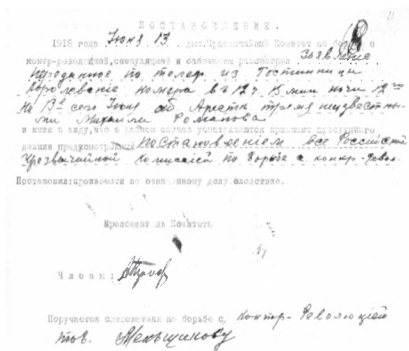 ПОСТАНОВЛЕНИЕ.
1918 года Июня 13 дня. Чрезвычайный Комитет по борьбе с
контр-революцией, спекуляцией и саботажем рассмотрев заявление
переданное по телеф. из Гостинници
Королевские номера в 12 ч. 15 мин ночи 12го
На 13е сего Июня об Аресте тремя неизвестны-
ми Михаила Романова
и имея в виду, что в данном случае усматриваются признаки преступного
деяния предусмотренного постановлением все Российской
чрезвычайной комиссией по борьбе с контр-Револ.
Постановил: произвести по означенному делу следствие.
Председатель Комитета
Члены:
Поручается следователю по борьбе с контр-Революцией
тов. Меньщикову